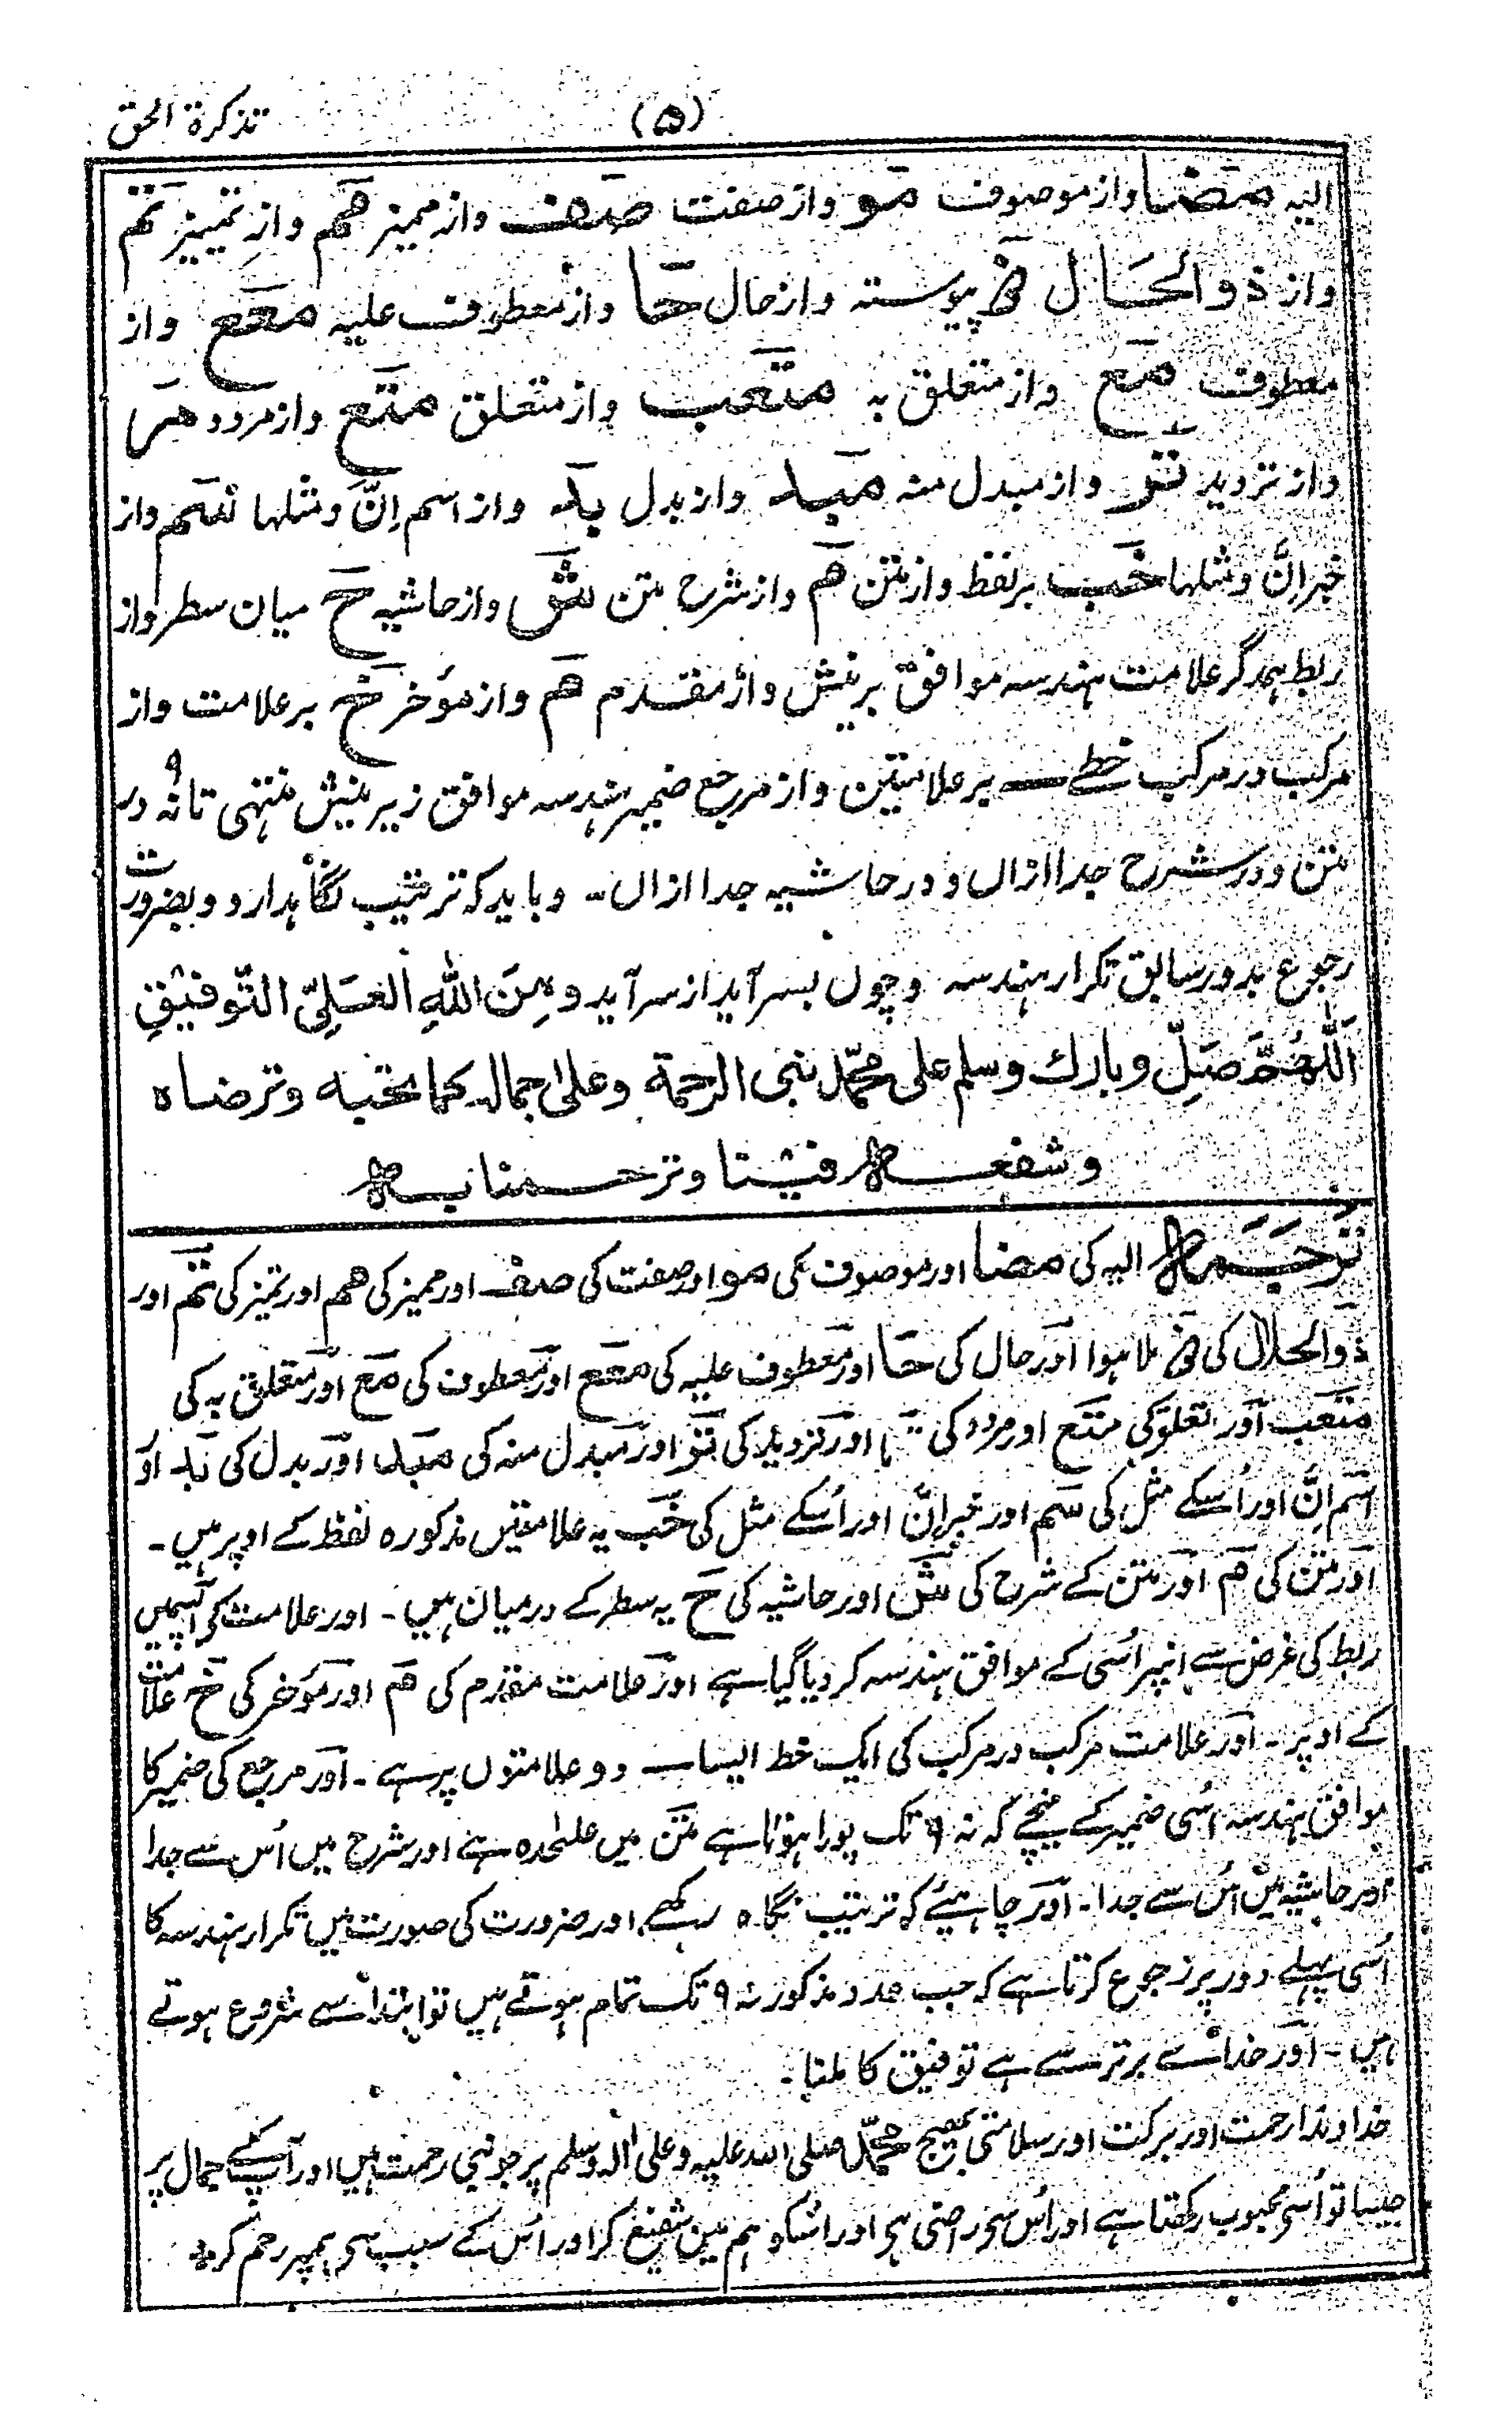 تذکرة الحق
(۵)
الیه مضا واز موصوف مو واز صفت صف واز ممیز هم واز تمییز تم
واز ذو الحال فی پیوسته واز حال حا واز معطوف علیه معع واز
معطوف مع واز متعلق به متعب واز متعلق متع واز مردد هر
واز تردید تر واز مبدل منه مبد واز بدل بد واز اسم اِنَّ ومثلها سم واز
خبر انَّ ومثلها خب بر لفظ واز متن م واز شرح متن ش واز حاشیه ح میان سطر واز
ربط همدگر علامت هندسه موافق بریش واز مقدم م واز مؤخر خ بر علامت واز
مرکب در مرکب خطے ــ بر علامتین واز مرجع ضمیر هندسه موافق زیرینش منتهی تا نه ۹ در
متن ودر شرح جدا ازاں ودر حاشیه جدا ازاں ـ وباید که ترتیب نگاهدارد وبضرورت
رجوع بدور سابق تکرار هندسه وچوں بسر آید از سر آید ومِنَ اللهِ العَلِیِّ التَّوفیقِ
اَللّٰهُمَّ صَلِّ وبارك وسلم علی محمّد نبی الرحمة وعلیٰ جماله کما تحبه وترضاه
وشفعه فینا وترحمنا به
ترجمه الیه کی مضا اور موصوف کی مو اور صفت کی صف اور ممیز کی هم اور تمیز کی تم اور
ذو الحلال کی فی ملا ہوا اور حال کی حا اور معطوف علیه کی معع اور معطوف کی مع اور متعلق به کی
متعب اور تعلق کی متع اور مردد کی اور تردید کی تر اور مبدل منه کی مبد اور بدل کی بد او
اسم اِنَّ اور اُسکے مثل کی سم اور خبر انَّ اور اُسکے مثل کی خب یه علامتیں مذکوره لفظ کے اوپر ہیں ۔
اور متن کی م اور متن کے شرح کی ش اور حاشیه کی ح یه سطر کے درمیان ہیں ۔ اور علامت کو آپسمیں
ربط کی غرض سے انپر اُسی کے موافق ہندسه کر دیا گیا ہے اور علامت مقدم کی م اور مؤخر کی خ علامت
کے اوپر ۔ اور علامت مرکب در مرکب کی ایک خط ایسا ــ دو علامتوں پر ہے ۔ اور مرجع کی ضمیر کا
موافق ہندسه اُسی ضمیر کے نیچے که نه ۹ تک پورا ہوتا ہے متن میں علٰحده ہے اور شرح میں اُس سے جدا
اور حاشیه میں اُس سے جدا ۔ اور چاہیئے که ترتیب نگاه رکھے اور ضرورت کی صورت میں تکرار ہندسه کا
اُسی پہلے دور پر رجوع کرتا ہے که جب عدد مذکور نه ۹ تک تمام ہوتے ہیں تو ابتدا سے شروع ہوتے
ہیں ۔ اور خدائے برتر سے ہے توفیق کا ملنا ۔
خداوندا رحمت اور برکت اور سلامتی بھیج محمّد صلی الله علیه وعلی اٰله وسلم پر جو نبی رحمت ہیں اور آپ کے جمال پر
جیسا تو اُسی محبوب رکھتا ہے اور اُس سی راضی ہی اور اسُکو ہم میں شفیع کر اور اس کے سبب سی ہمپر رحم کر